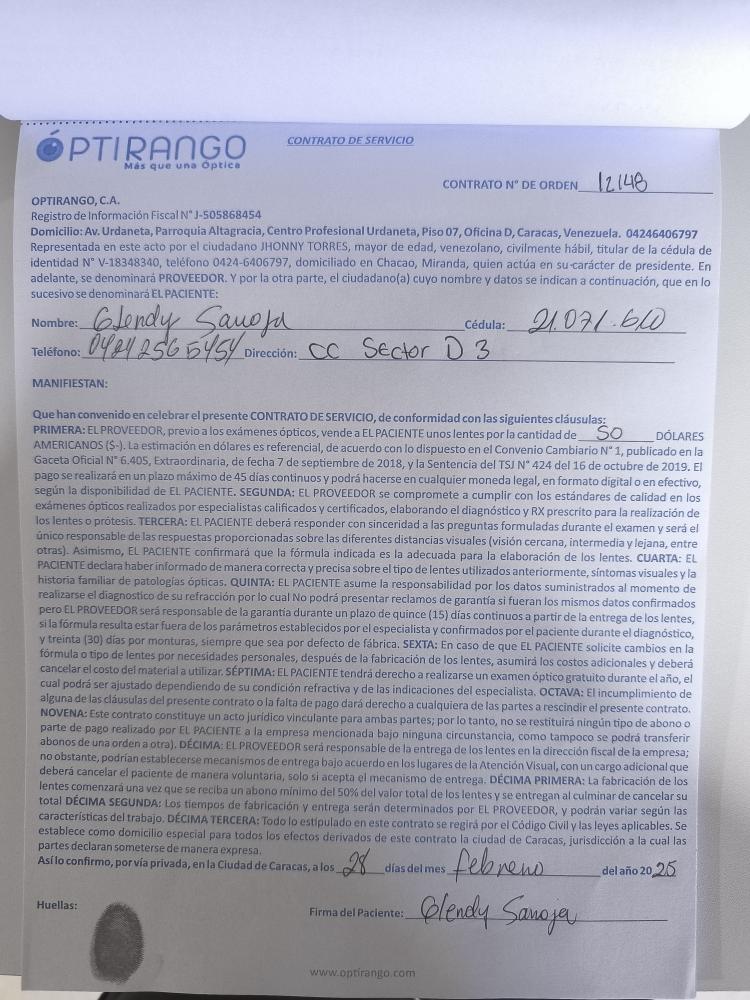 ÓPTIRANGO
Más que una Óptica
CONTRATO DE SERVICIO
CONTRATO N° DE ORDEN 12148
OPTIRANGO, C.A.
Registro de Información Fiscal N° J-505868454
Domicilio: Av. Urdaneta, Parroquia Altagracia, Centro Profesional Urdaneta, Piso 07, Oficina D, Caracas, Venezuela. 04246406797
Representada en este acto por el ciudadano JHONNY TORRES, mayor de edad, venezolano, civilmente hábil, titular de la cédula de
identidad N° V-18348340, teléfono 0424-6406797, domiciliado en Chacao, Miranda, quien actúa en su carácter de presidente. En
adelante, se denominará PROVEEDOR. Y por la otra parte, el ciudadano(a) cuyo nombre y datos se indican a continuación, que en lo
sucesivo se denominará EL PACIENTE:
Nombre: Glendy Sanoja Cédula: 21.071.610
Teléfono: 0424 256 5454 Dirección: CC Sector D 3
MANIFIESTAN:
Que han convenido en celebrar el presente CONTRATO DE SERVICIO, de conformidad con las siguientes cláusulas:
PRIMERA: EL PROVEEDOR, previo a los exámenes ópticos, vende a EL PACIENTE unos lentes por la cantidad de 50 DÓLARES
AMERICANOS ($-). La estimación en dólares es referencial, de acuerdo con lo dispuesto en el Convenio Cambiario N° 1, publicado en la
Gaceta Oficial N° 6.405, Extraordinaria, de fecha 7 de septiembre de 2018, y la Sentencia del TSJ N° 424 del 16 de octubre de 2019. El
pago se realizará en un plazo máximo de 45 días continuos y podrá hacerse en cualquier moneda legal, en formato digital o en efectivo,
según la disponibilidad de EL PACIENTE. SEGUNDA: EL PROVEEDOR se compromete a cumplir con los estándares de calidad en los
exámenes ópticos realizados por especialistas calificados y certificados, elaborando el diagnóstico y RX prescrito para la realización de
los lentes o prótesis. TERCERA: EL PACIENTE deberá responder con sinceridad a las preguntas formuladas durante el examen y será el
único responsable de las respuestas proporcionadas sobre las diferentes distancias visuales (visión cercana, intermedia y lejana, entre
otras). Asimismo, EL PACIENTE confirmará que la fórmula indicada es la adecuada para la elaboración de los lentes. CUARTA: EL
PACIENTE declara haber informado de manera correcta y precisa sobre el tipo de lentes utilizados anteriormente, síntomas visuales y la
historia familiar de patologías ópticas. QUINTA: EL PACIENTE asume la responsabilidad por los datos suministrados al momento de
realizarse el diagnostico de su refracción por lo cual No podrá presentar reclamos de garantía si fueran los mismos datos confirmados
pero EL PROVEEDOR será responsable de la garantía durante un plazo de quince (15) días continuos a partir de la entrega de los lentes,
si la fórmula resulta estar fuera de los parámetros establecidos por el especialista y confirmados por el paciente durante el diagnóstico,
y treinta (30) días por monturas, siempre que sea por defecto de fábrica. SEXTA: En caso de que EL PACIENTE solicite cambios en la
fórmula o tipo de lentes por necesidades personales, después de la fabricación de los lentes, asumirá los costos adicionales y deberá
cancelar el costo del material a utilizar. SÉPTIMA: EL PACIENTE tendrá derecho a realizarse un examen óptico gratuito durante el año, el
cual podrá ser ajustado dependiendo de su condición refractiva y de las indicaciones del especialista. OCTAVA: El incumplimiento de
alguna de las cláusulas del presente contrato o la falta de pago dará derecho a cualquiera de las partes a rescindir el presente contrato.
NOVENA: Este contrato constituye un acto jurídico vinculante para ambas partes; por lo tanto, no se restituirá ningún tipo de abono o
parte de pago realizado por EL PACIENTE a la empresa mencionada bajo ninguna circunstancia, como tampoco se podrá transferir
abonos de una orden a otra). DÉCIMA: EL PROVEEDOR será responsable de la entrega de los lentes en la dirección fiscal de la empresa;
no obstante, podrían establecerse mecanismos de entrega bajo acuerdo en los lugares de la Atención Visual, con un cargo adicional que
deberá cancelar el paciente de manera voluntaria, solo si acepta el mecanismo de entrega. DÉCIMA PRIMERA: La fabricación de los
lentes comenzará una vez que se reciba un abono mínimo del 50% del valor total de los lentes y se entregan al culminar de cancelar su
total DÉCIMA SEGUNDA: Los tiempos de fabricación y entrega serán determinados por EL PROVEEDOR, y podrán variar según las
características del trabajo. DÉCIMA TERCERA: Todo lo estipulado en este contrato se regirá por el Código Civil y las leyes aplicables. Se
establece como domicilio especial para todos los efectos derivados de este contrato la ciudad de Caracas, jurisdicción a la cual las
partes declaran someterse de manera expresa.
Así lo confirmo, por vía privada, en la Ciudad de Caracas, a los 28 días del mes febrero del año 2025
Huellas:
Firma del Paciente: Glendy Sanoja
www.optirango.com